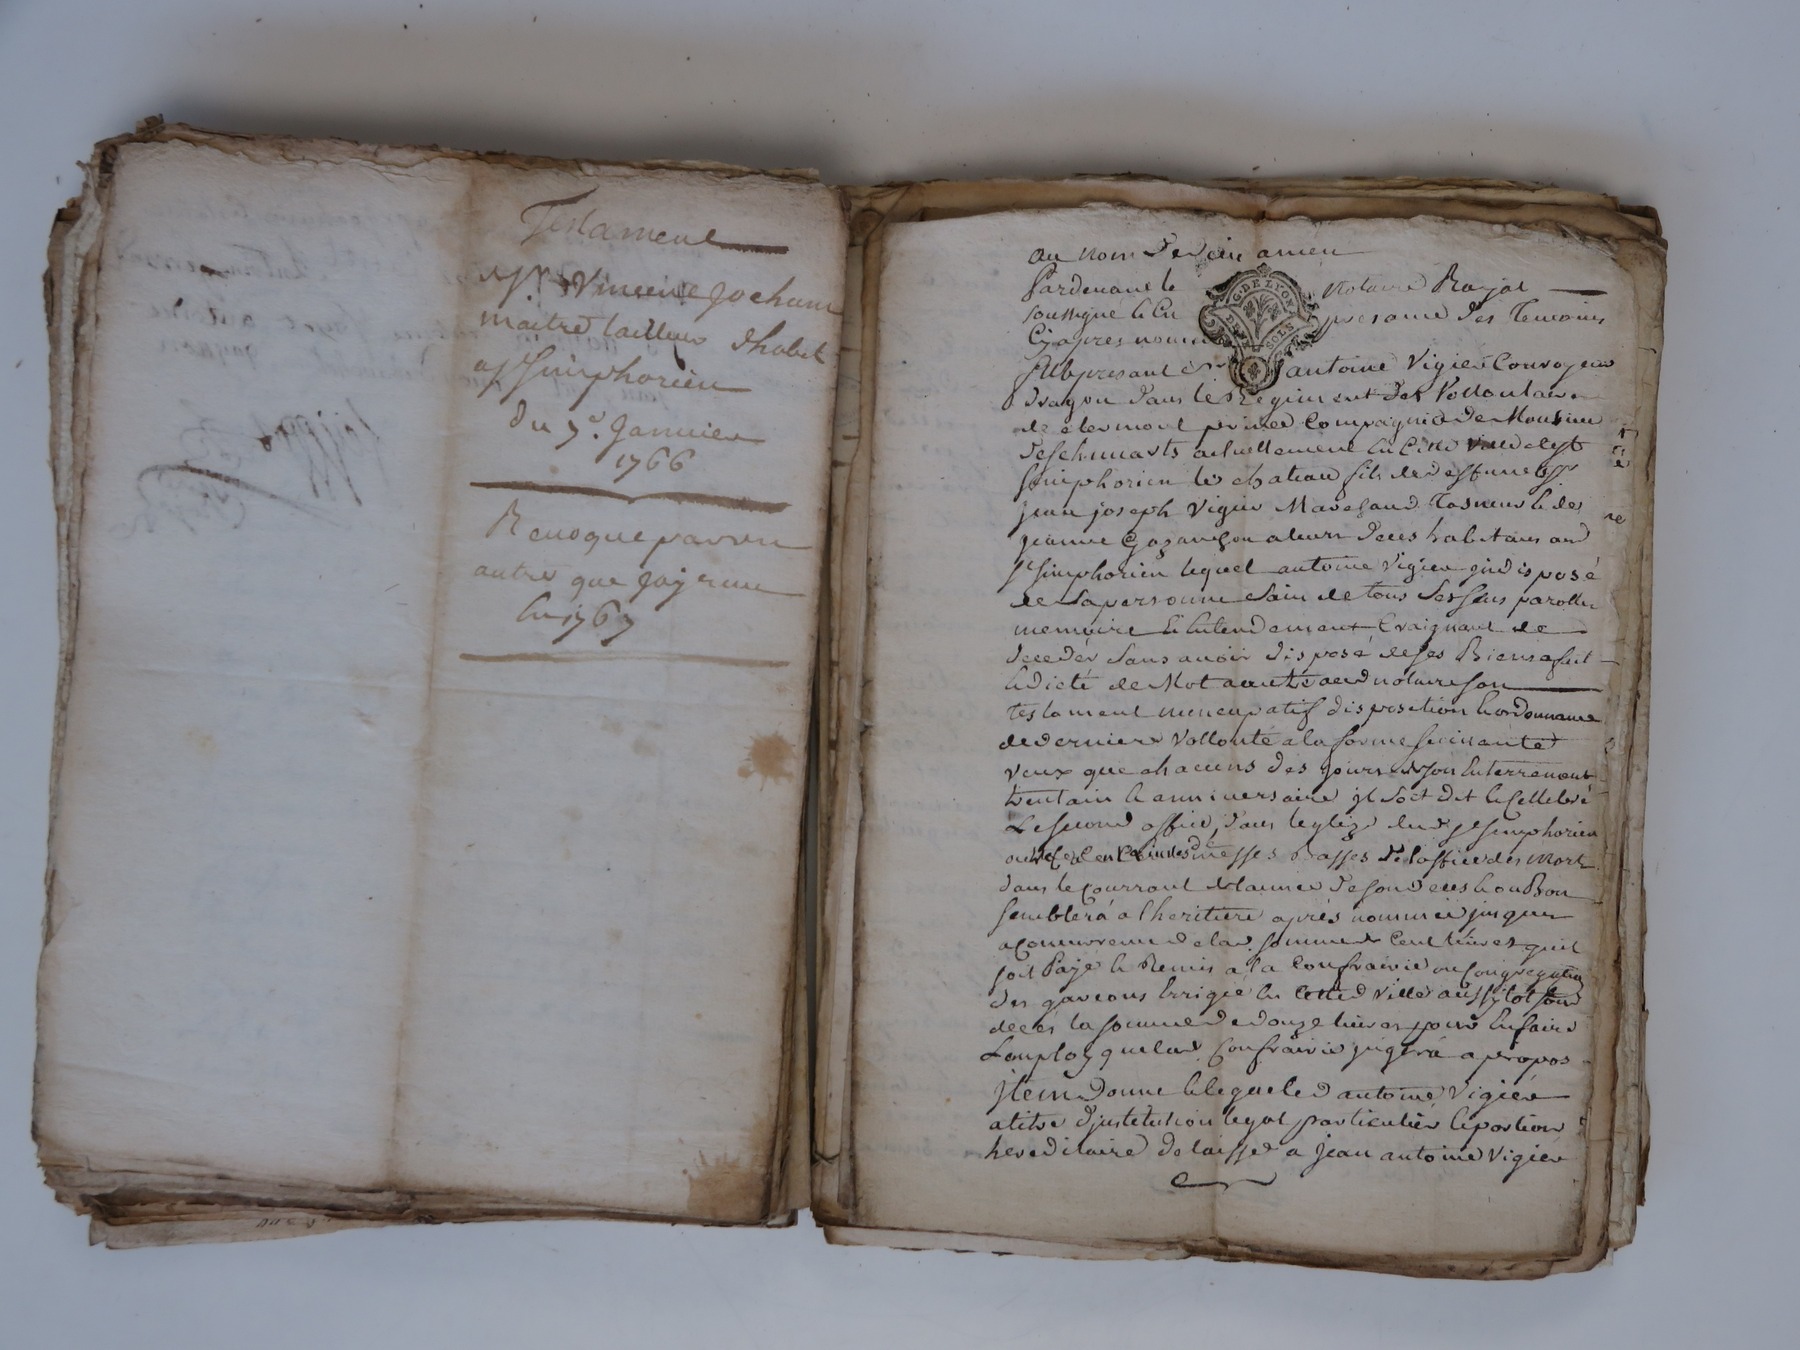 Testament
Sr. Vincent Jocham
maitre tailleur dhabit
a St Simphorien
du 7e. Janvier
1766
Revoqué par un
autre que jay reçu
en 1767
au nom de dieu amen
Pardevant le notaire Royal
soussigné et en presance des Temoins
Cy apres nommes
fut present Sr antoine Vigier Convoyeur
dragon dans le Regiment des Vollontaires
de clermont prince Compagnie de Monsieur
actuellement en cette ville de St
simphorien le chateau fils de deffunt Sr
jean joseph Vigier Marchand Tasneur et de
jeanne a leurs deces habitans aud
St simphorien lequel antoine Vigier indisposé
de sa personne sain de tous ses sens parolle
memoire et entendement Craignant de
deceder sans avoir disposé de ses Biens a fait
et dicté de Mot aud notaire son
testament nuncupatif disposition et ordonnance
de derniere Vollonté a la forme suivante
veux que chacuns des jours de son enterrement
trentain et anniversaire il soit dit et cellebré
le second office, dans leglize dud St Simphorien
messes Basses de loffice des Morts
dans le courrant de lannée de son deces et ou Bon
semblera a lheritiere apres nommée jusques
a concurrence de la somme de Cent livres quil
soit Payé et Remis a la Confrairie ou Congregation
des garcons Errigée en cette ville aussytot son
deces la somme de douze livres pour en faire
Lemploy que lad. Confrairie jugera a propos
jtem donne et legue led antoine Vigier
a titre djnstitution legat particulier et portion
hereditaire delaisse a jean antoine Vigier
G. DE LYON
DEUX SOLS